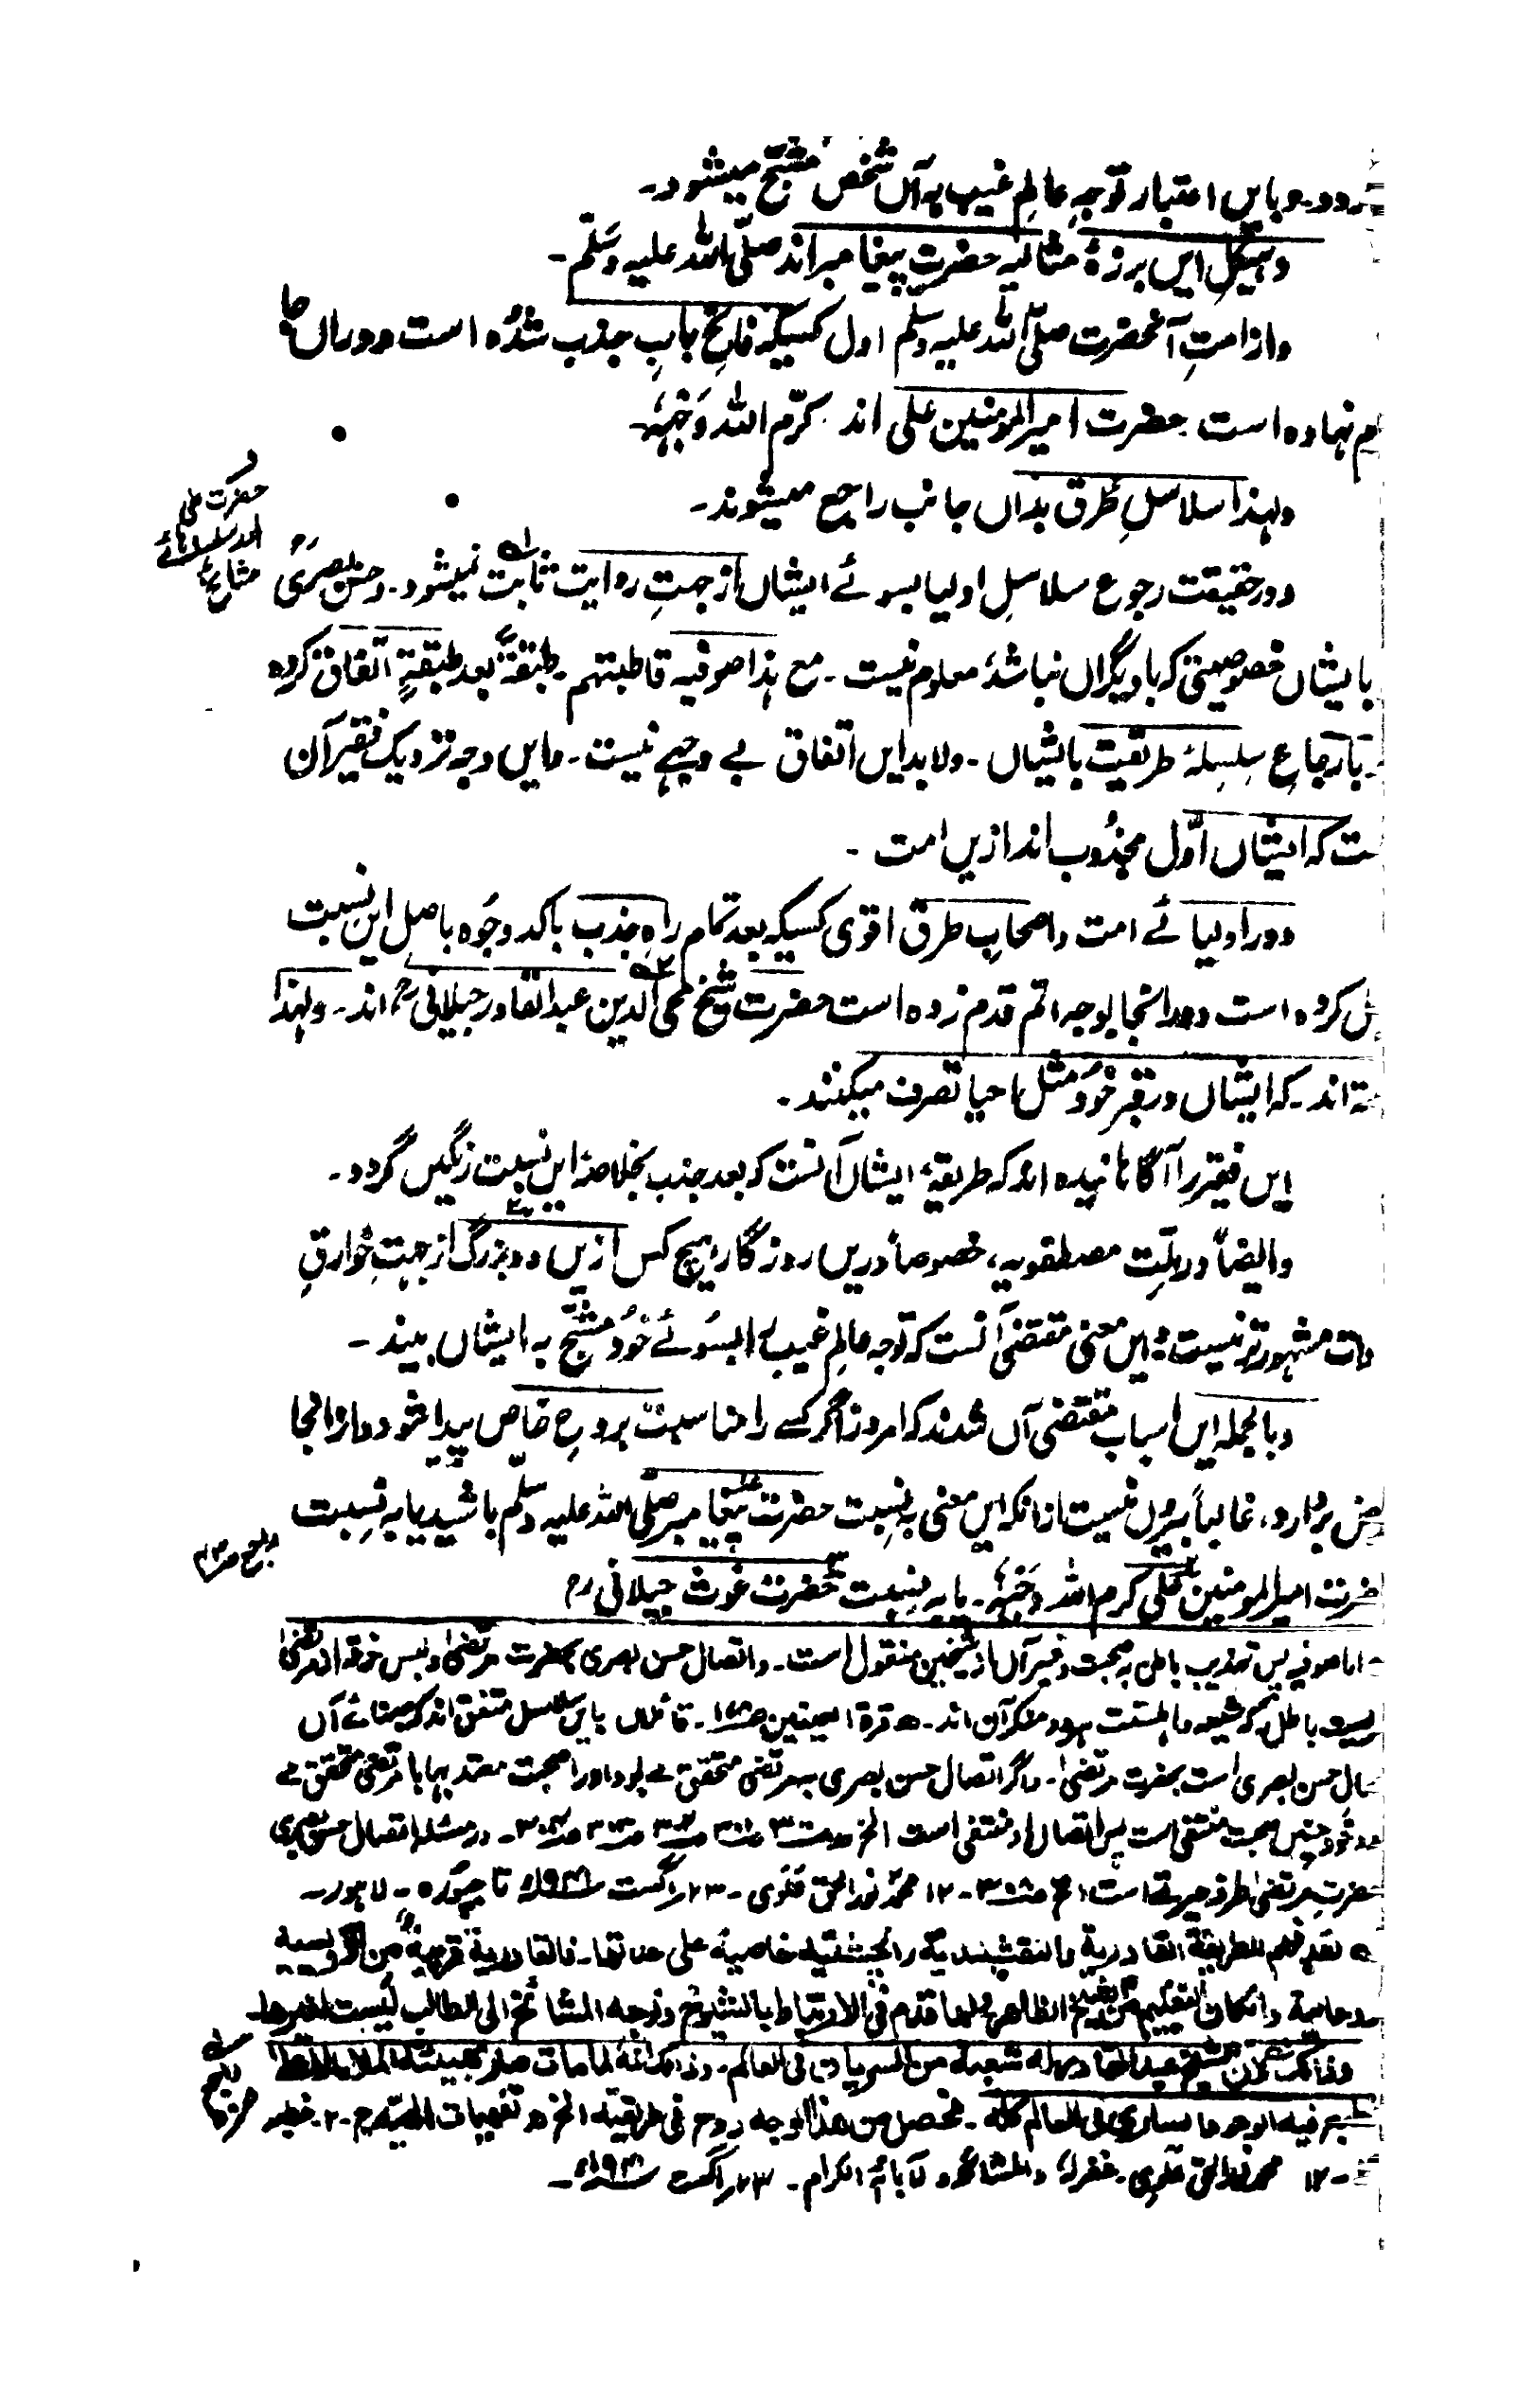 گردد۔ وبایں اعتبار توجہِ عالمِ غیب بہ آں شخص مشبّح میشود۔
وہیکلِ ایں برزۂ مثالیہ حضرتِ پیغامبر اند صلّی اللہ علیہ وسلّم۔
واز امتِ آنحضرت صلّی اللہ علیہ وسلم اول کسیکہ فاتحِ بابِ جذب شدُہ است ودراں جا
نہادہ است حضرت امیرالمومنین علی اند کرّم اللہ وَجہَہٗ۔
ولہٰذا سلاسلِ طُرق بداں جانب راجع میشوند۔
حضرت علی
اور سلسلہائے
مشائخ
ودرحقیقت رجوعِ سلاسلِ اولیا بسوئے ایشاں از جہتِ روایت ثابت نمیشود۔ وحسن بصریؒ
بایشاں خصوصیتی کہ با دیگراں نباشدُ معلوم نیست۔ مع ہذا صوفیہ قاطبتہم۔ طبقۃً بعد طبقۃٍ اتفاق کردہ
بارجاعِ سلسلۂ طریقت بایشاں۔ ولابد ایں اتفاق بے وجہے نیست۔ وایں وجہ نزدیک فقیر آن
ست کہ ایشاں اوّل مجذُوب اند ازیں امت۔
ودر اولیائے امت واصحابِ طرق اقوی کسیکہ بعد تمام راہِ جذب باکد وجُوہ باصلِ این نسبت
میل کردہ است ودرانجا بوجہ اتم قدم زدہ است حضرت شیخ محی الدین عبدالقادر جیلانیؒ اند۔ ولہٰذا
گفتہ اند۔ کہ ایشاں در قبر خودُ مثل احیا تصرف میکنند۔
ایں فقیر را آگاہانیدہ اند کہ طریقۂ ایشاں آنست کہ بعد جذب بخلاصۂ ایں نسبت رنگیں گردد۔
وایضاً در ملّت مصطفویہ، خصوصاً دریں روزگار ہیچ کس ازیں دو بزرگ از جہتِ خوارقِ
عادات مشہور تر نیست ایں معنی مقتضی آنست کہ توجہ عالمِ غیب را بسُوئے خودُ مشبّح بہ ایشاں بیند۔
وبالجملہ ایں اسباب مقتضی آں شدند کہ امروز اگر کسے را مناسبت بروحِ خاص پیدا شود واز انجا
فیض بردارد، غالباً بیروں نیست ازانکہ ایں معنی بہ نسبت حضرت پیغامبر صلّی اللہ علیہ وسلّم باشد یا بہ نسبت
حضرت امیرالمومنین علی کرم اللہ وجہَہٗ۔ یا بہ نسبت حضرت غوث جیلانی رح
اما صوفیہ پس تہذیب باطن بہ صحبت وغیر آں از شیخین منقول است۔ واتصال حسن بصری بحضرت مرتضیٰ ولبس خرقہ از مرتضیٰ
باطل کہ شیعہ واہلسنت منکر آن اند۔ قرۃ العینین قائلاں بایں سلاسل متفق اند کہ مبنائے آں
اتصال حسن بصری است بحضرت مرتضیٰ۔ واگر اتصال حسن بصری بمرتضیٰ متحقق مے بود واورا صحبت معتد بہا با مرتضیٰ متحقق مے
منتفی است پس اتصال او منتفی است الخ در مسئلہ اتصال حسن بصری
بحضرت مرتضیٰ است ۱۲ محمد نورالحق علوی۔ ۲۳ اگست لاہور۔
للطریقۃ القادریۃ والنقشبندیۃ والچشتیۃ خاصیۃ علی حدتہا۔ فالقادریۃ قریبۃ من الاویسیۃ
الروحانیۃ وان کان من الشیخ الظاہر فی الارتباط بالشیوخ وتوجہ المشائخ الی الطالب لیست لغیرہا۔
وذالک لان الشیخ عبدالقادر لہ شعبۃ من السریان فی العالم۔ وذالک انہ لما مات صار بہیئۃ الملأ الاعلیٰ
فیہ الوجود الساری فی العالم کلہ۔ فحصل من ہذا الوجہ روح فی طریقتہ الخ تفہیمات الٰہیہ
۱۲ محمد نورالحق علوی۔ غفرلہ ولمشائخہ ولآبائہ الکرام۔ ۲۳ اگست